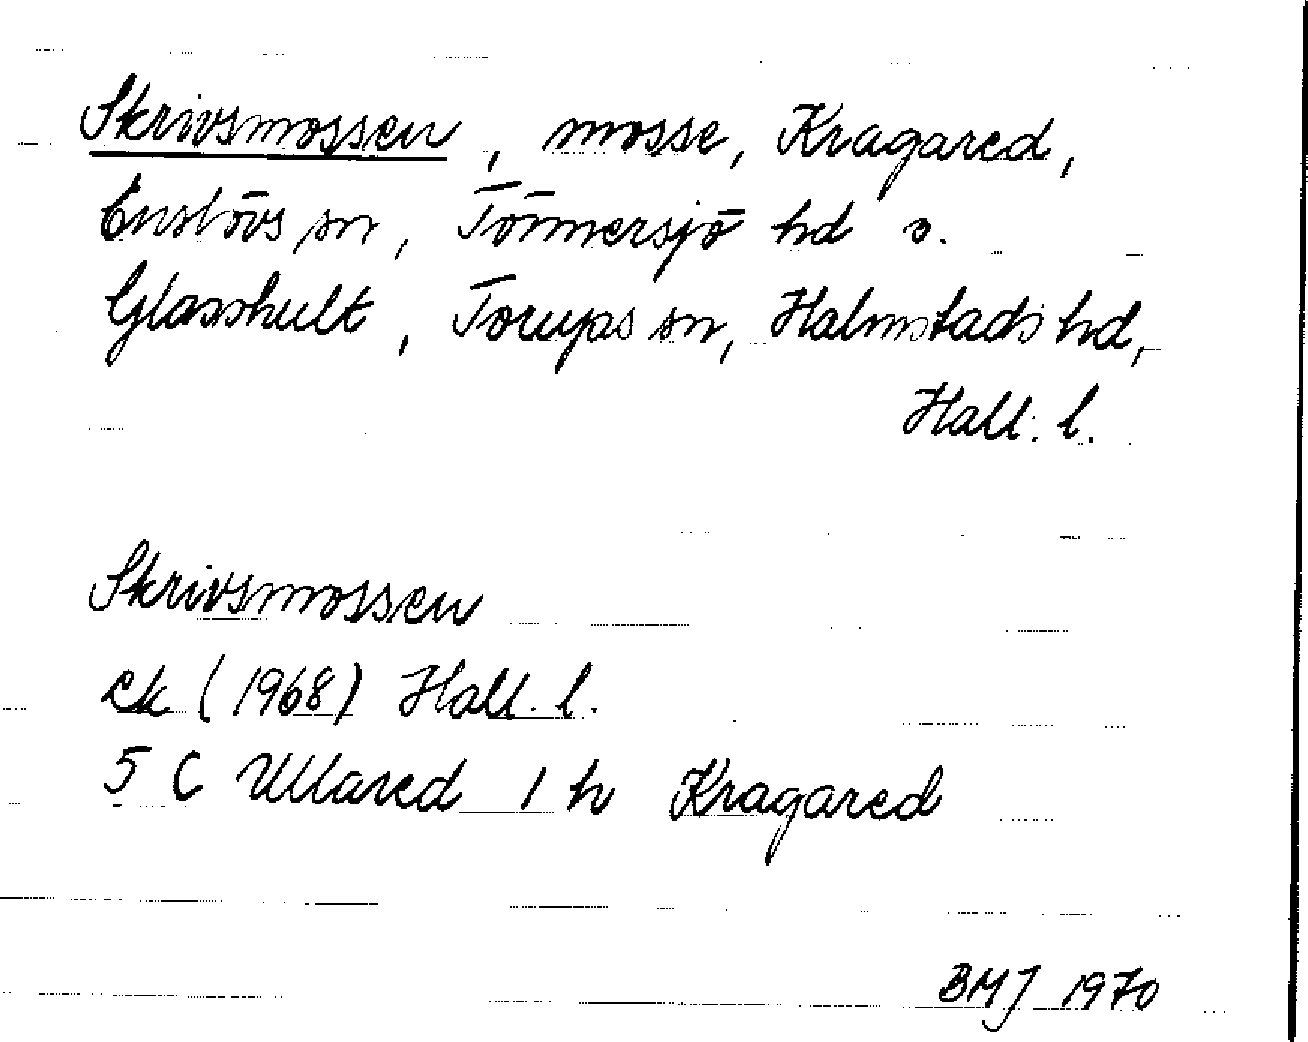 Skrivsmossen, mosse, Kragared,
Enslövs sn, Tönnersjö hd o.
Glasshult, Torups sn, Halmstads hd,
Hall. l.
Skrivsmossen
ek (1968) Hall. l.
5 C Ullared 1 h Kragared
BMJ 1970